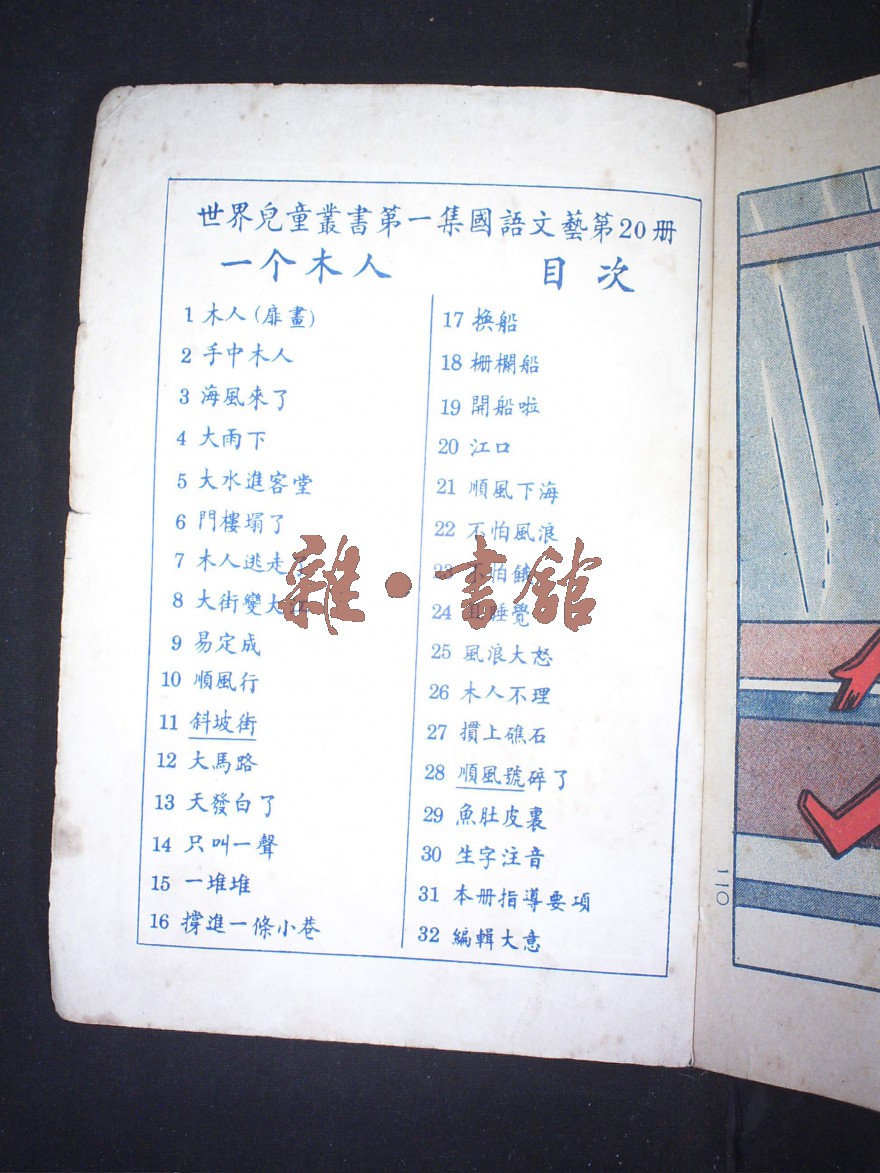 世界兒童叢書第一集國語文藝第20册
一个木人 目次
1 木人(扉畫)
2 手中木人
3 海風來了
4 大雨下
5 大水進客堂
6 門樓塌了
7 木人逃走了
8 大街變大江
9 易定成
10 順風行
11 斜坡街
12 大馬路
13 天發白了
14 只叫一聲
15 一堆堆
16 撐進一條小巷
17 换船
18 栅欄船
19 開船啦
20 江口
21 順風下海
22 不怕風浪
23 不怕餓
24 睡覺
25 風浪大怒
26 木人不理
27 摜上礁石
28 順風號碎了
29 魚肚皮裏
30 生字注音
31 本册指導要項
32 編輯大意
雜·書館
一一〇